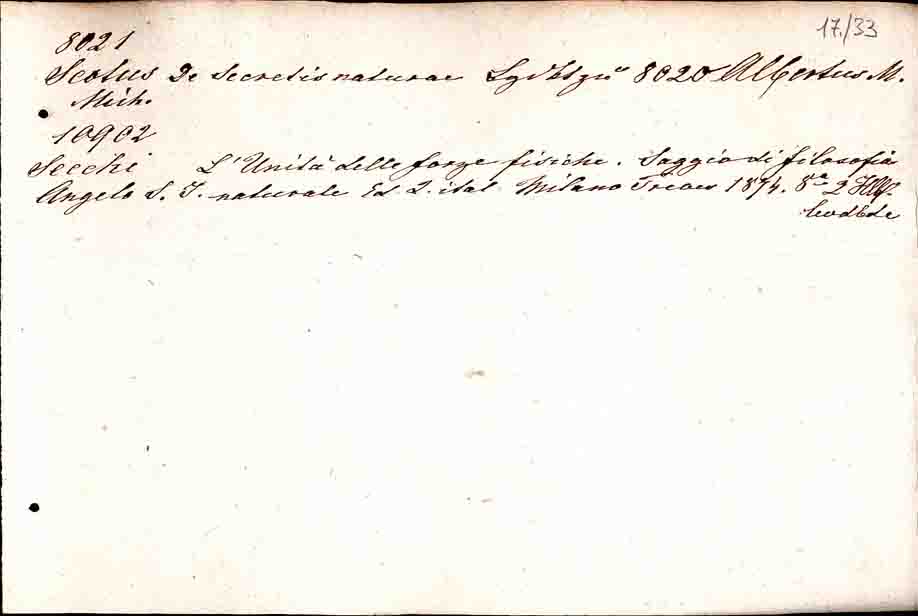 17./33
8021
Scotus De secretis naturae 8020 Albertus M.
Mich.
10902
Secchi L'Unità delle forze fisiche. Saggio di filosofia
Angelo S. J. naturale Ed 2. ital Milano Treves 1874. 8° 2